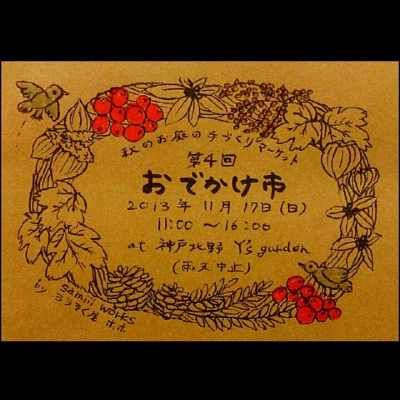 秋のお庭の手づくりマーケット
第4回
おでかけ市
2013年 11月17日(日)
11:00 〜16:00
at 神戸北野 Y's garden
(雨天中止)
by samiii works
ろうそく屋 ホホ